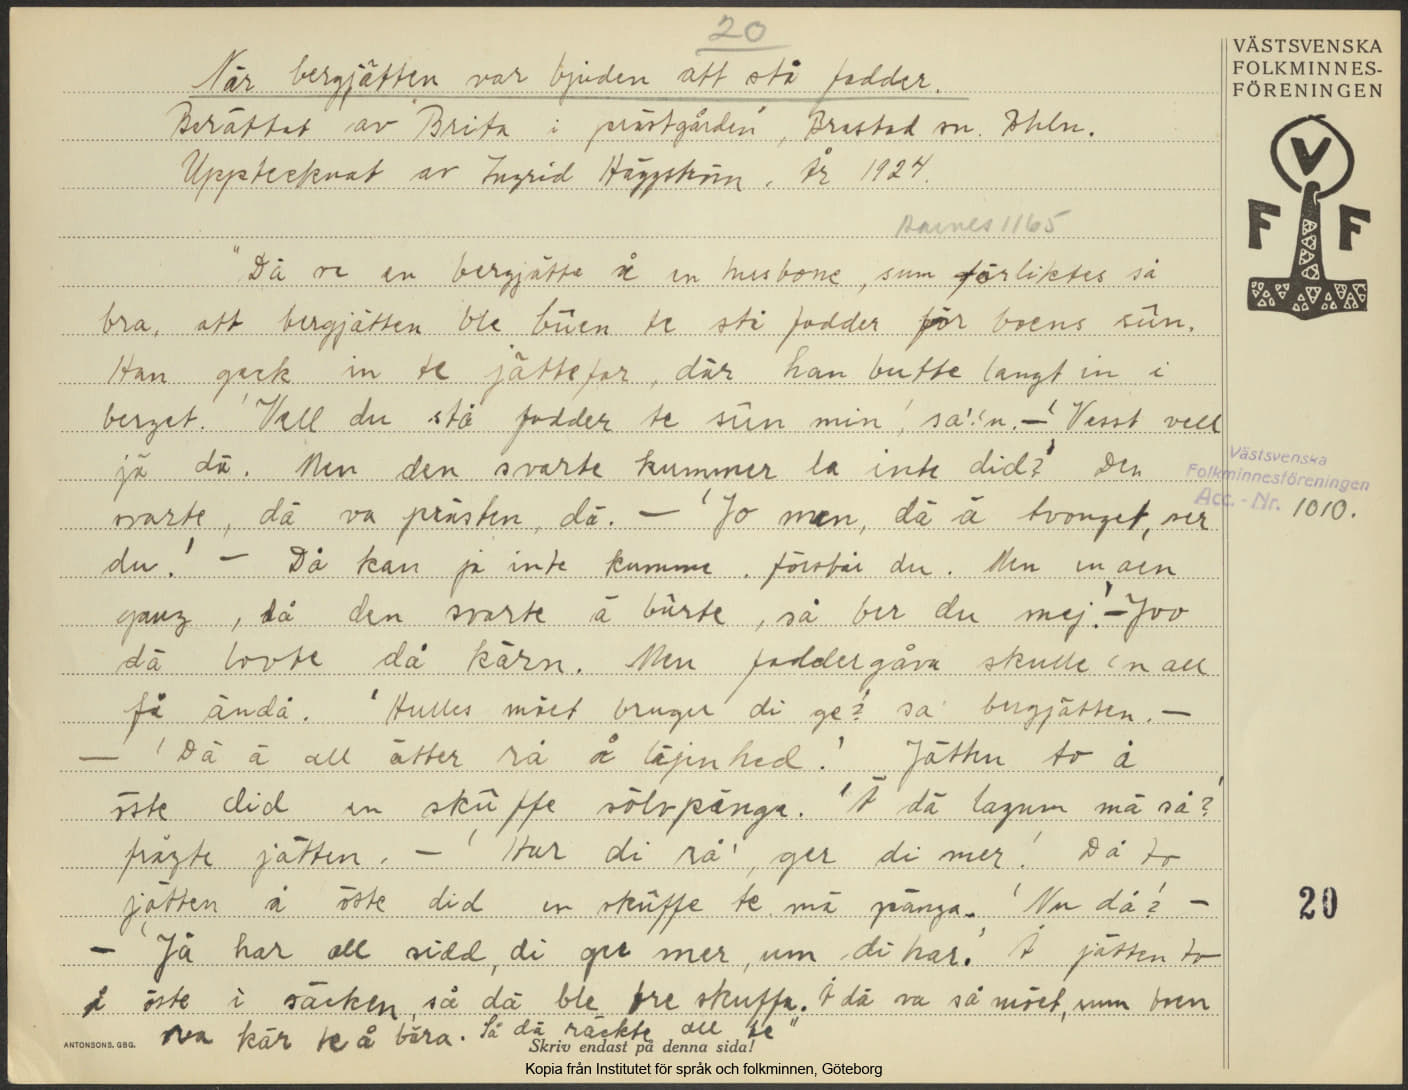 20
När bergjätten var bjuden att stå fadder.
Berättat av "Brita i prästgården", Brastad sn. Bhln.
Upptecknat av Ingrid Häggström. År 1924.
1165
"Dä va en bergjätte å en husbone, sum förliktes så
bra, att bergjätten ble büen te stå fadder för boens sün.
Han geck in te jättefar, där han butte langt in i
berget. 'Vell du stå fadder te sün min', sa'n. – 'Visst vell
jä dä. Men den svarte kummer la inte did?' Den
svarte, dä va prästen, dä. – 'Jo men, dä ä tvonget, ser
du.' – Då kan ja inte kumme, förstår du. Men en aen
gang, då den svarte ä bürte, så ber du mej.' – Joo
dä lovte då kärn. Men faddergåva skulle 'n all
få ändå. 'Hulles möet bruger di ge?' sa bergjätten. –
– 'Dä ä all ätter rå å läjenhed.' Jätten to å
öste did en sküffe sölvpänga. 'Ä dä lagum mä så?'
frågte jätten. – 'Har di rå', ger di mer.' Då to
jätten å öste did en sküffe te mä pänga. 'Nu då?' –
– 'Jä har all sidd, di ger mer, um di har.' Å jätten to
å öste i säcken, så dä ble tre skuffa. Å dä va så möet, sum boen
va kär te å bära. Så dä räckte all te"
VÄSTSVENSKA
FOLKMINNES-
FÖRENINGEN
V
F F
Västsvenska
Folkminnesföreningen
Acc.-Nr. 1010.
20
ANTONSONS, GBG.
Skriv endast på denna sida!
Kopia från Institutet för språk och folkminnen, Göteborg